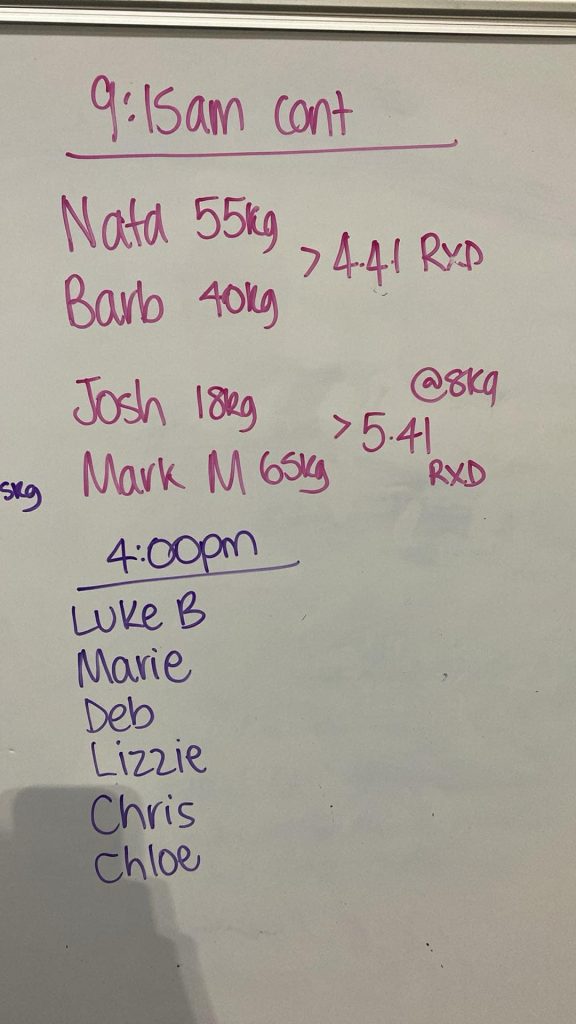 9:15am cont
Nata 55kg
Barb 40kg
> 4.41 RXD
Josh 18kg
Mark M 65kg
> 5.41
@8kg
RXD
5kg
4:00pm
Luke B
Marie
Deb
Lizzie
Chris
Chloe